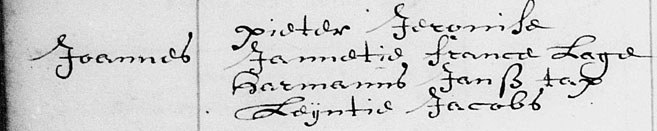 pieter Jeronise
Joannes Jannetie france Lage
Harmanus Janß tap
Leijntie Jacobs